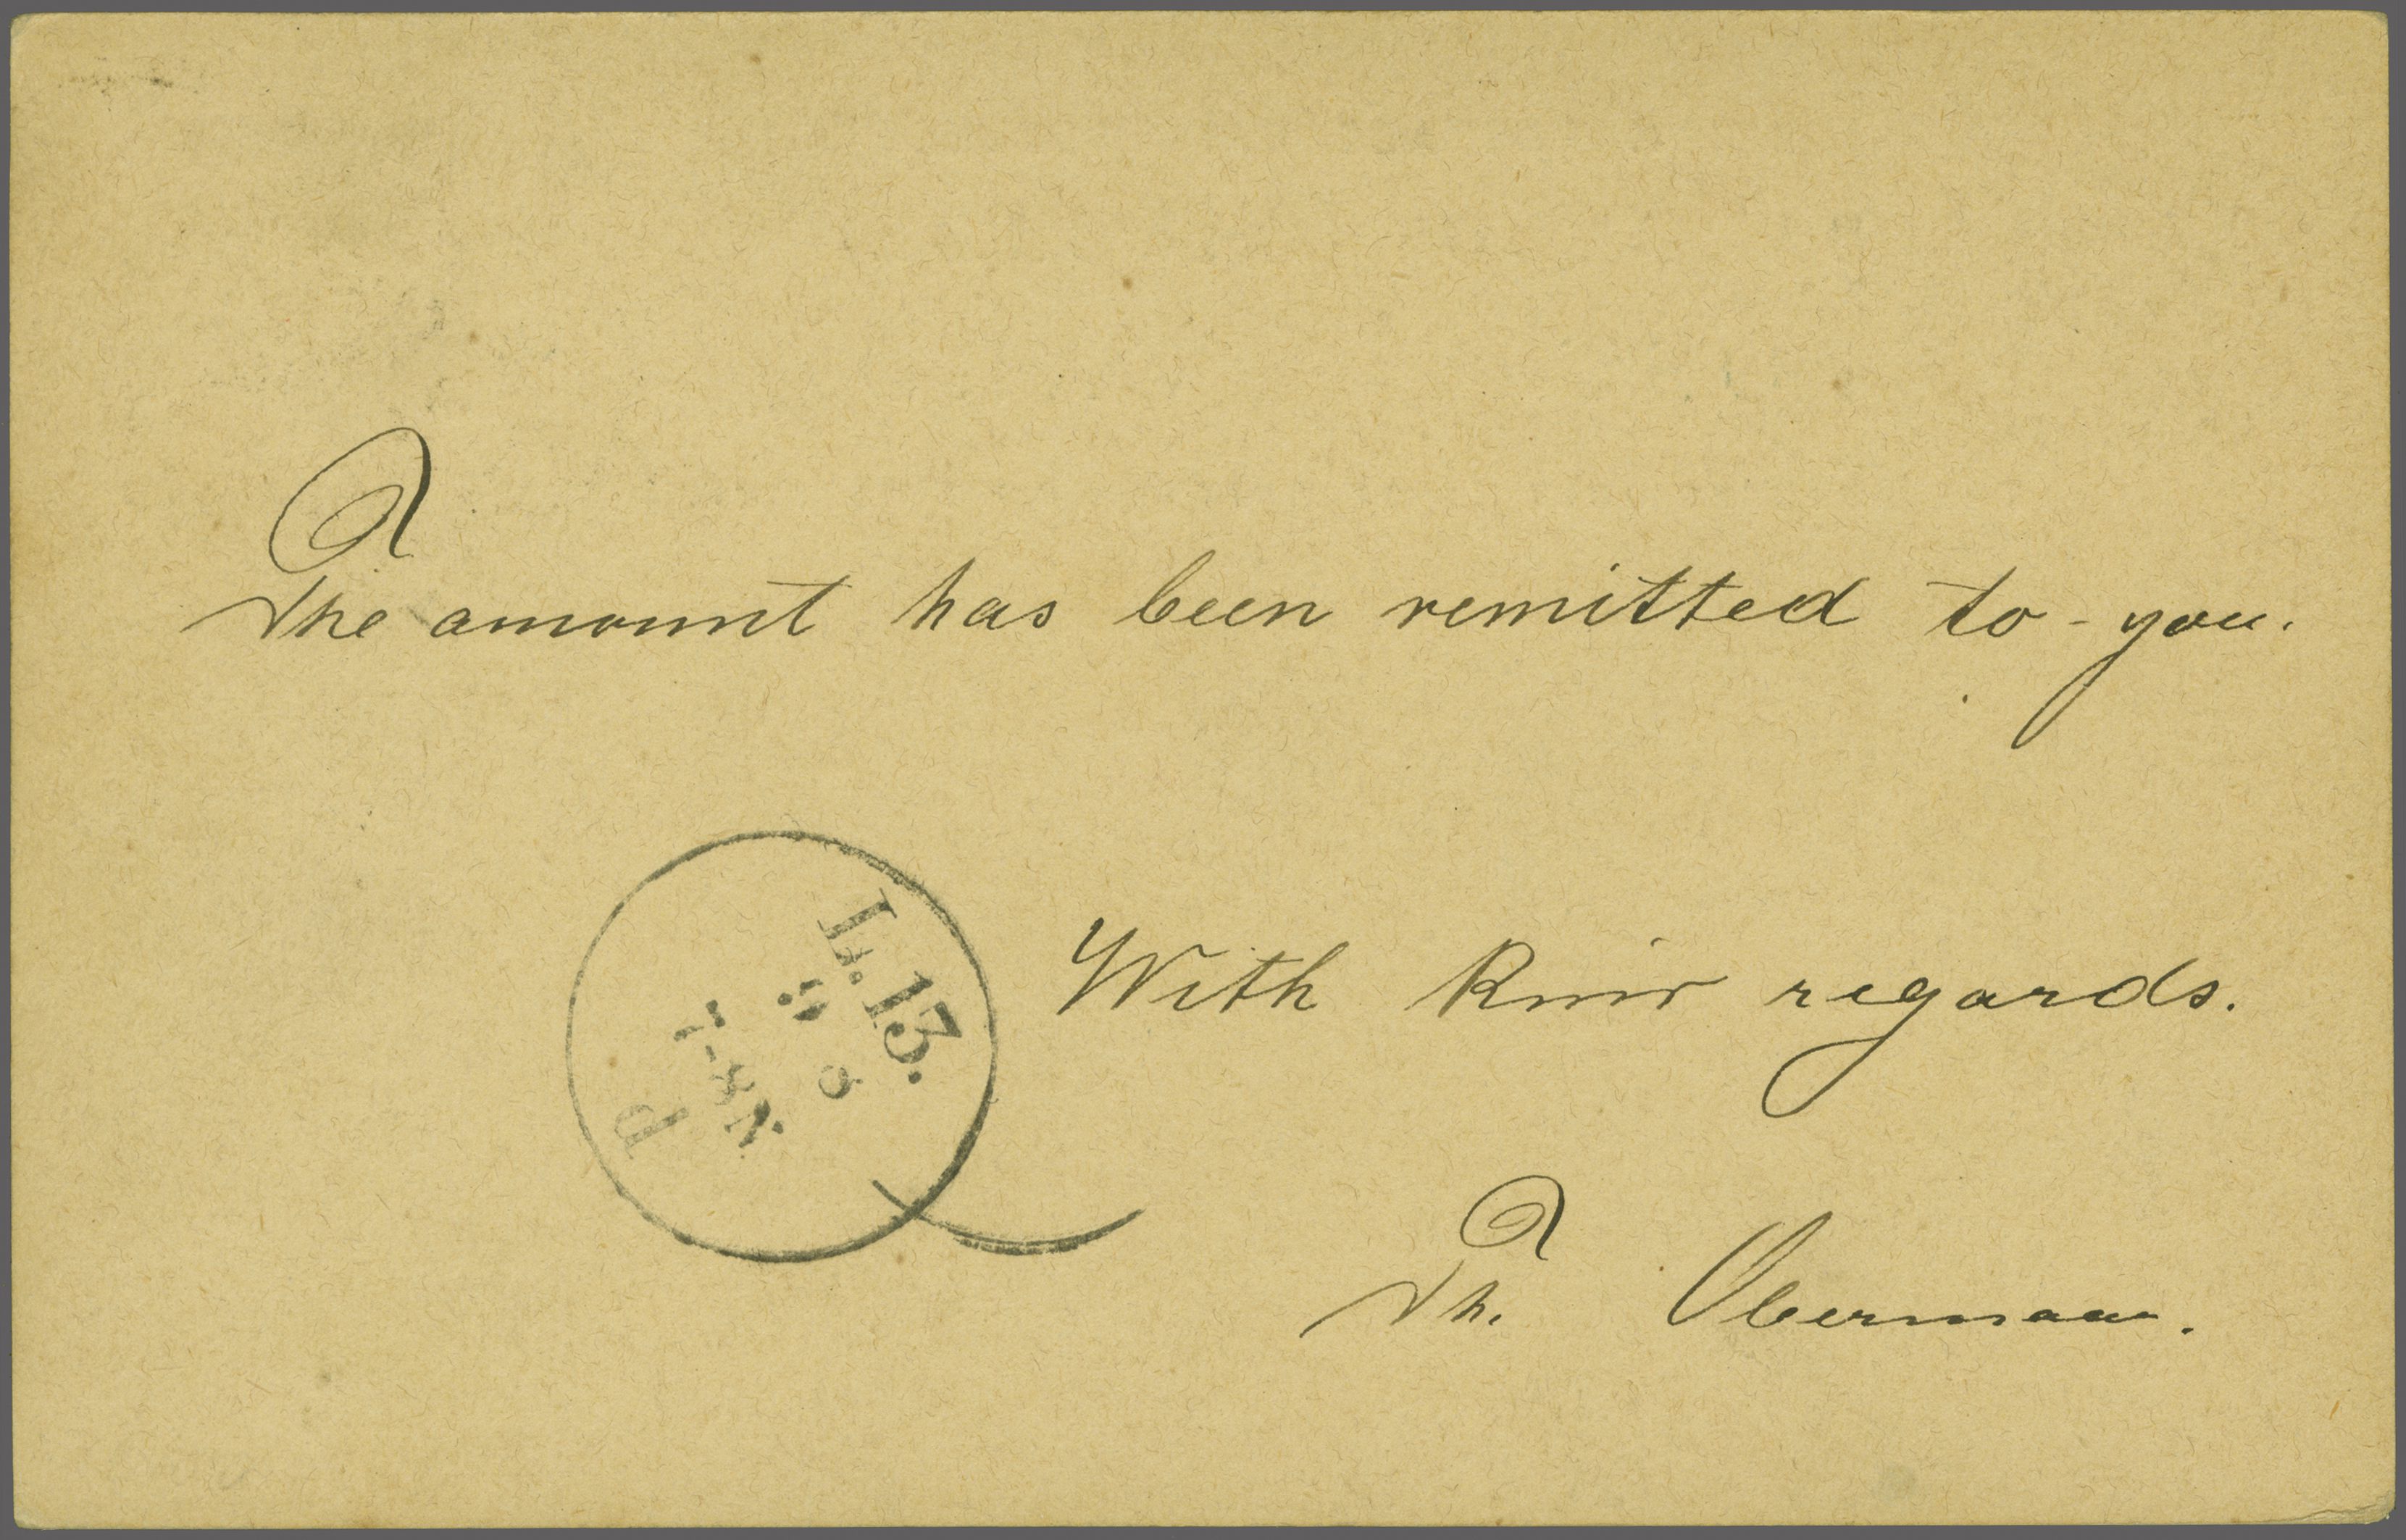 The amount has been remitted to - you.
L. 13.
With kind regards.
Th. Obermann.